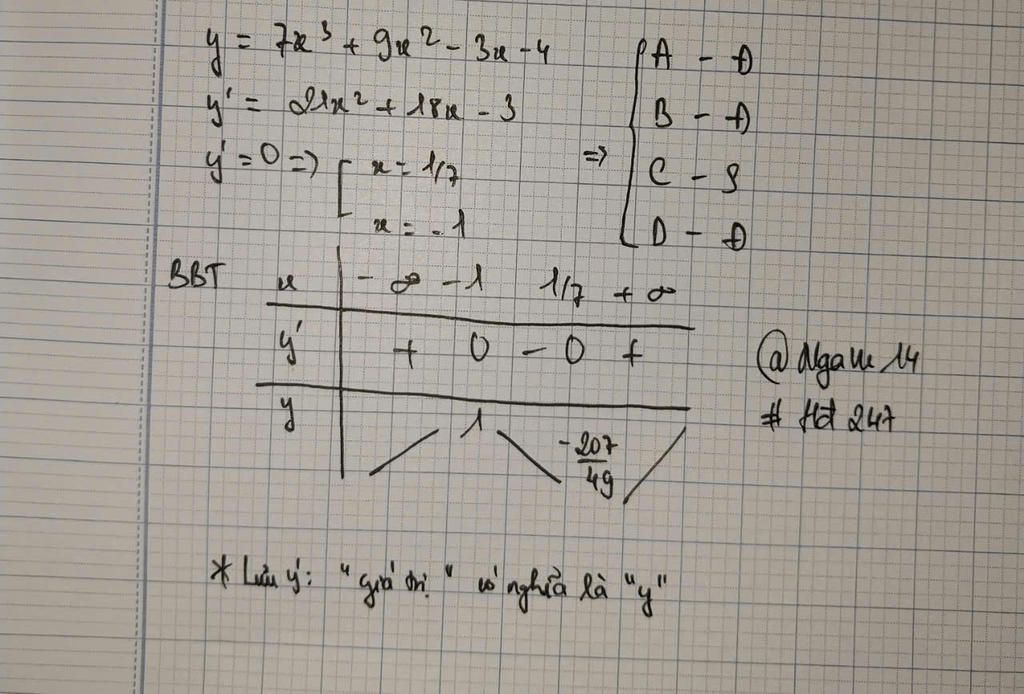 y = 7x³ + 9x² - 3x - 4
y' = 21x² + 18x - 3
y' = 0 => [ x = 1/7
x = -1
=> { A - Đ
B - Đ
C - S
D - Đ
BBT x -∞ -1 1/7 +∞
y' + 0 - 0 +
y 1 -207/49
@Ngam14
# Hđ 247
* Lưu ý: "giá trị" có nghĩa là "y"